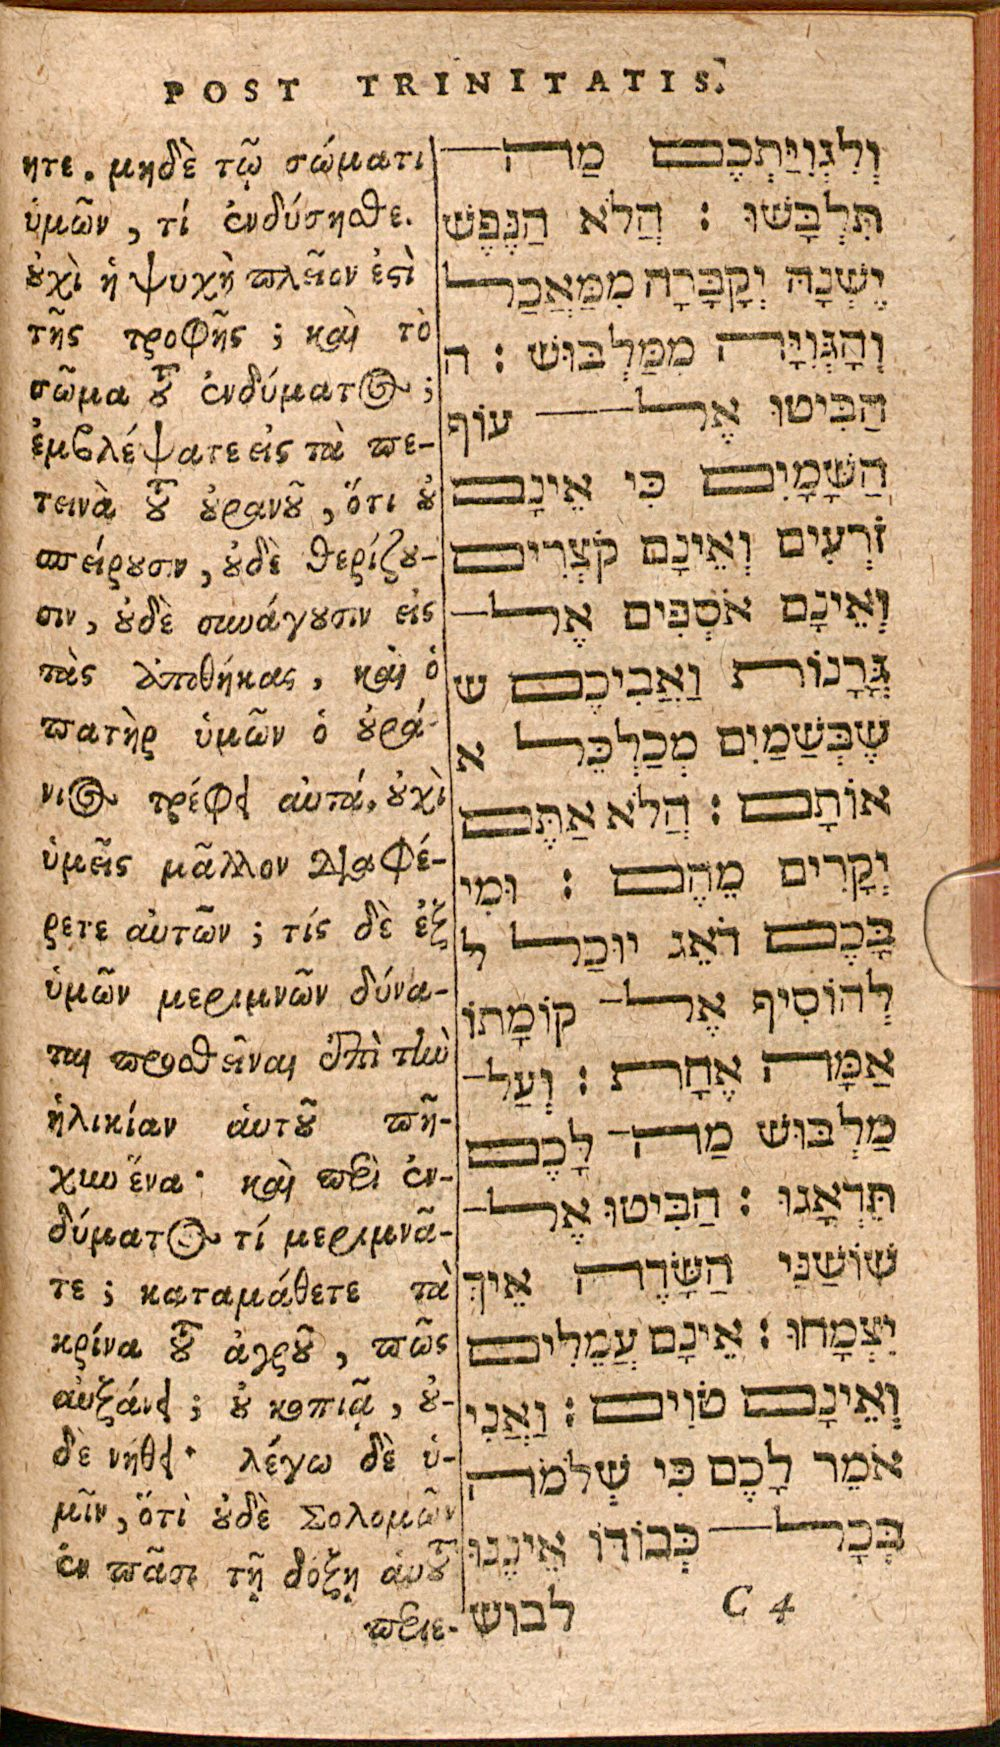 POST TRINITATIS.
ητε. μηδὲ τῷ σώματι
ὑμῶν, τί ἐνδύσησθε.
ȣ̓χὶ ἡ ψυχὴ πλεῖον ἐϛὶ
τῆς τροφῆς; καὶ τὸ
σῶμα τȣ͂ ἐνδύματος;
ἐμβλέψατε εἰς τὰ πε-
τεινὰ τȣ͂ ȣ̓ρανȣ͂, ὅτι ȣ̓
σπείρȣσιν, ȣ̓δὲ θερίζȣ-
σιν, ȣ̓δὲ συνάγȣσιν εἰς
τὰς ἀποθήκας, καὶ ὁ
πατὴρ ὑμῶν ὁ ȣ̓ρά-
νιος τρέφει αὐτά, ȣ̓χὶ
ὑμεῖς μᾶλλον διαφέ-
ρετε αὐτῶν; τίς δὲ ἐξ
ὑμῶν μεριμνῶν δύνα-
ται προσθεῖναι ἐπὶ τὴν
ἡλικίαν ἁυτȣ͂ πῆ-
χυν ἕνα· καὶ περὶ ἐν-
δύματος τί μεριμνᾶ-
τε; καταμάθετε τὰ
κρίνα τȣ͂ ἀγρȣ͂, πῶς
αὐξάνει; ȣ̓ κοπιᾷ, ȣ̓-
δὲ νήθει· λέγω δὲ ὑ-
μῖν, ὅτι ȣ̓δὲ Σολομῶν
ἐν πᾶσι τῇ δόξῃ ἁυτȣ͂
περιε-
וְלִגְוִיַּתְכֶם מַה—
תִּלְבָּשׁוּ : הֲלֹא הַנֶּפֶשׁ
יֶשְׁנָהּ יְקָבָּרָה מִמַּאֲכַל
וְהַגְּוִיָּה מִמַּלְבּוּשׁ : ה
הַבִּיטוּ אֶל— עוֹף
הַשָּׁמָיִם כִּי אֵינָם
זֹרְעִים וְאֵינָם קֹצְרִים
וְאֵינָם אֹסְפִּים אֶל—
גֳּרָנוֹת וַאֲבִיכֶם ש
שֶׁבְּשַׁמַיִם מְכַלְכֵּל א
אוֹתָם : הֲלֹא אַתֶּם
יְקָרִים מֵהֶם : וּמִי
בָּכֶם דֹּאֵג יוּכַל ל
לְהוֹסִיף אֶל— קוֹמָתוֹ
אַמָּה אֶחָת : וְעַל-
מַלְבּוּשׁ מַה— לָכֶם
תִּדְאָגוּ : הַבִּיטוּ אֶל-
שׁוֹשַׁנֵּי הַשָּׂדֶה אֵיךְ
יִצְמָחוּ : אֵינָם עֲמֵלִים
וְאֵינָם טֹוִים : וַאֲנִי
אֹמֵר לָכֶם כִּי שְׁלֹמֹה
בְּכָל— כְּבוֹדוֹ אֵינֶנּוּ
לבוש C 4